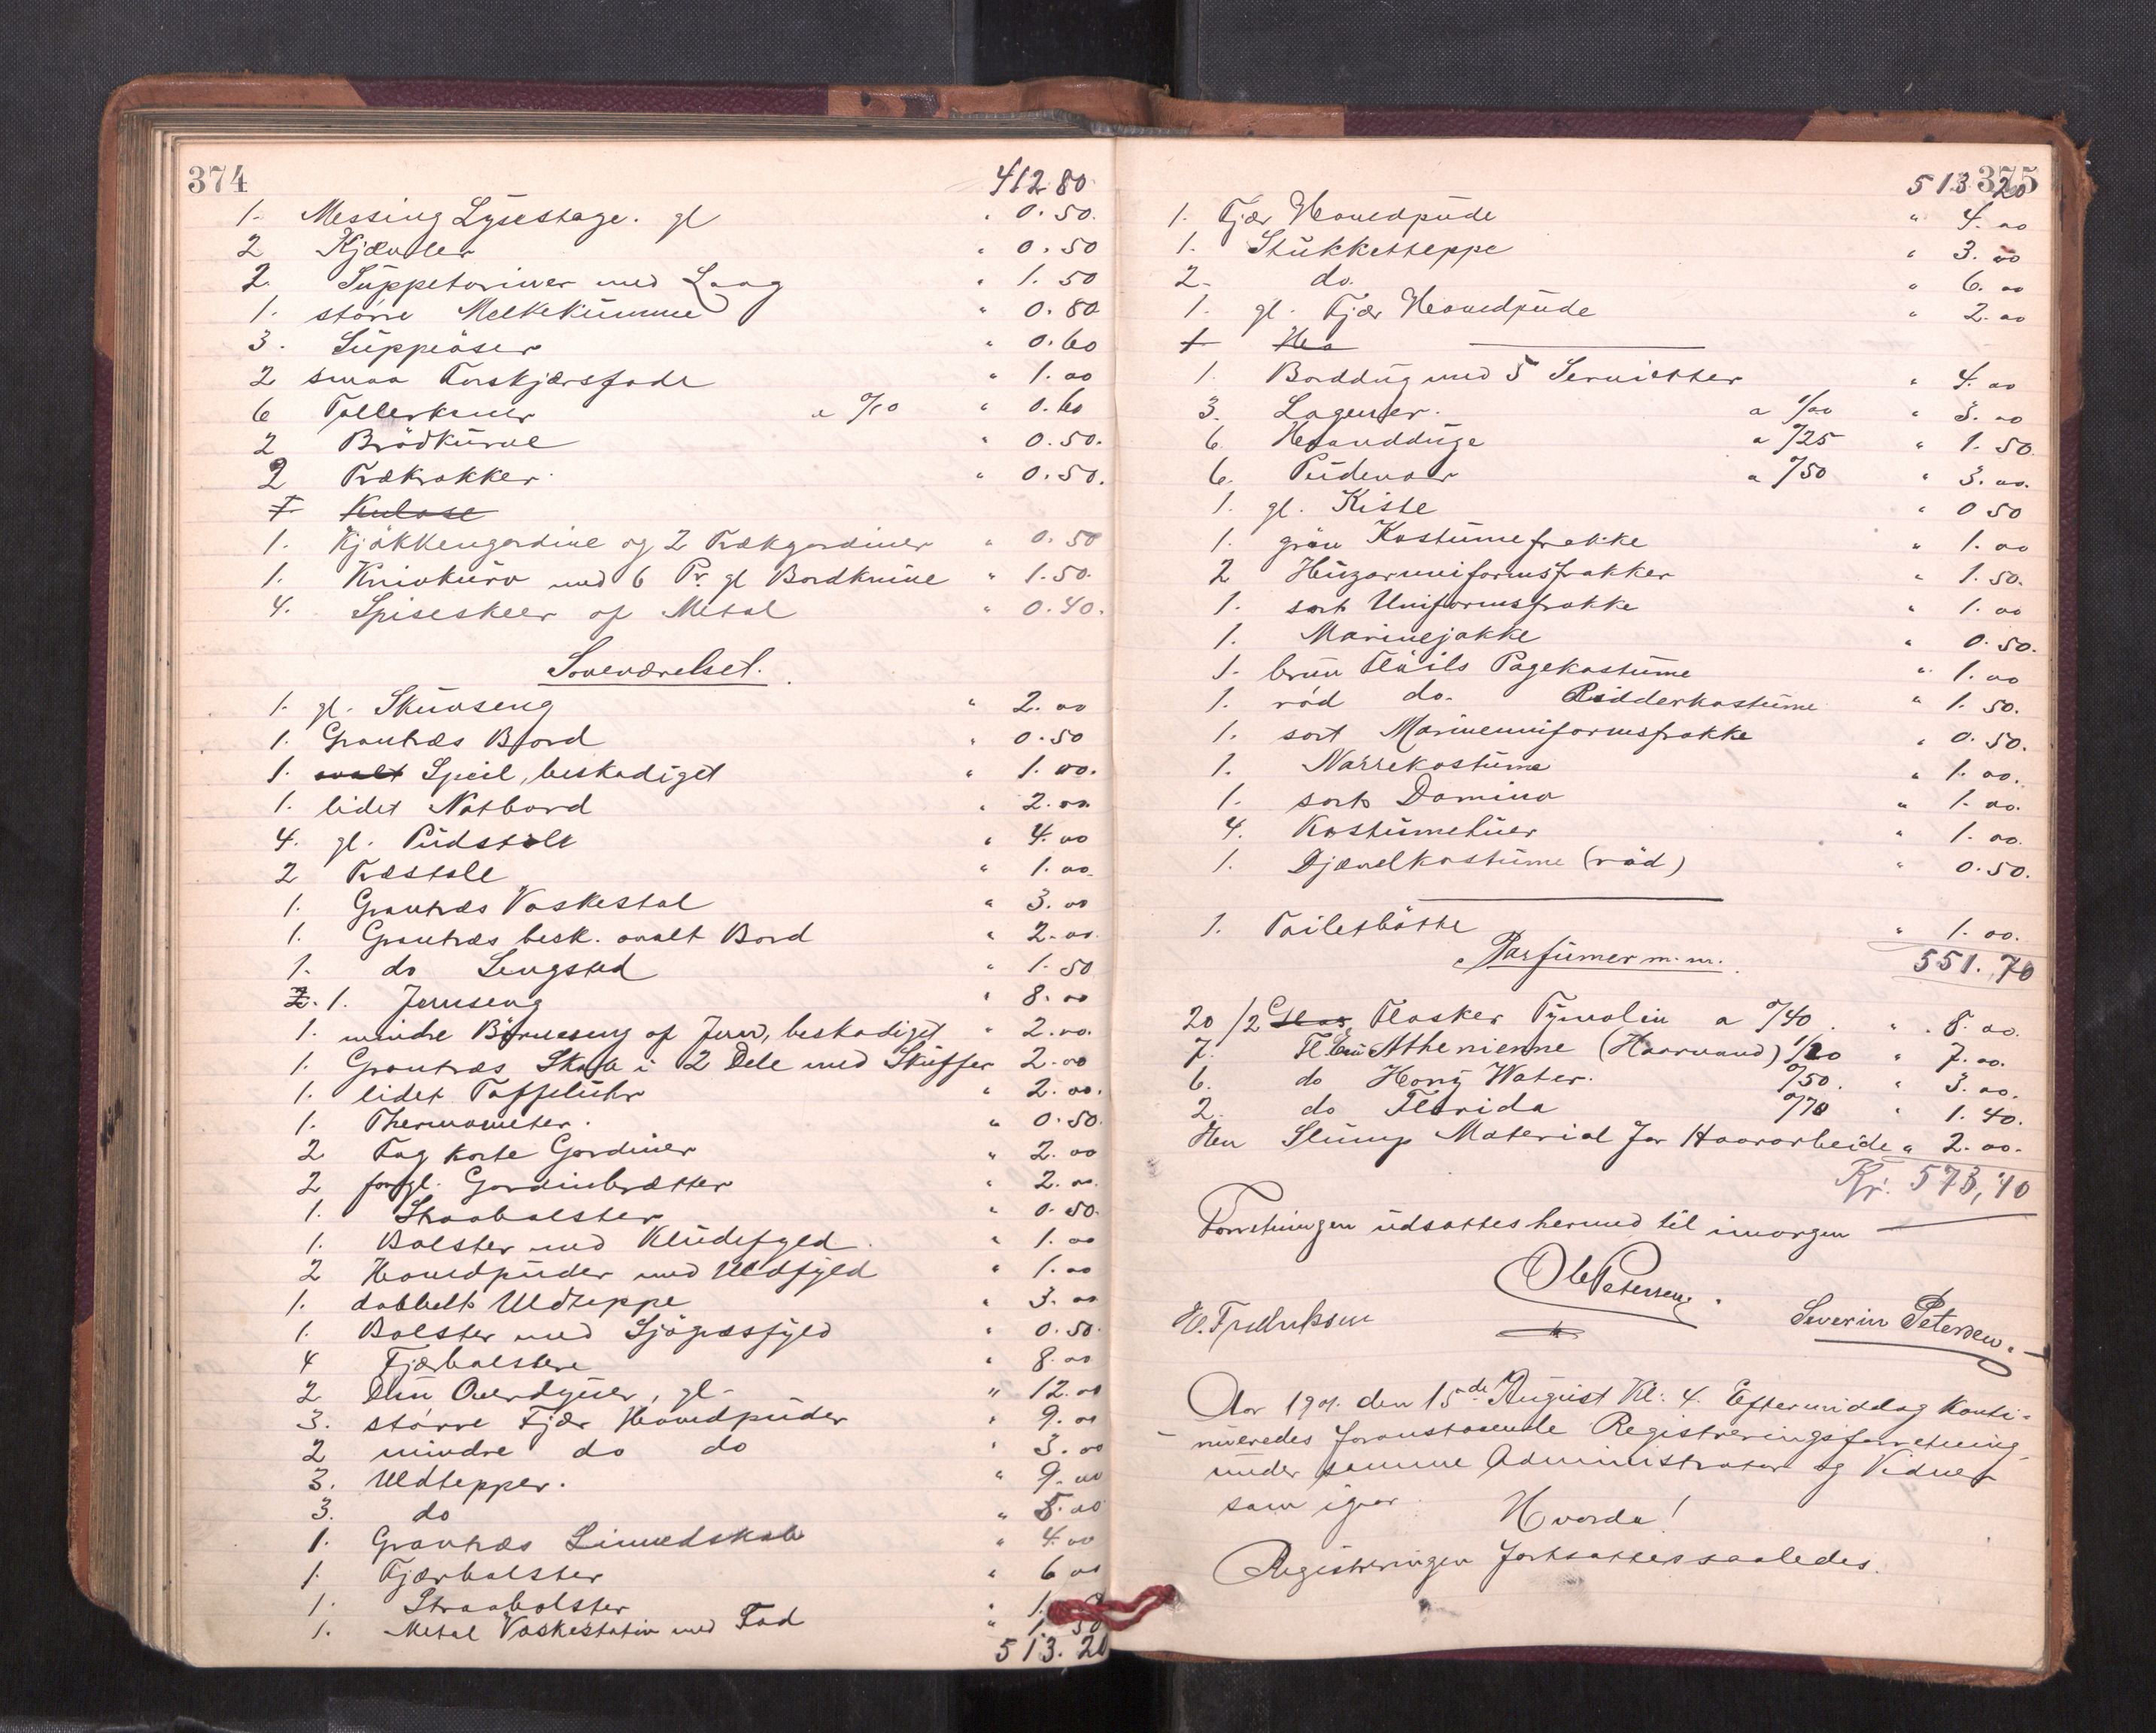 374
412 80
1. Messing Lysestage. gl " 0.50.
2 Kjævler " 0.50
2. Suppetariner med Laag " 1.50
1. större Melkekumme " 0.80
3. Suppeöser " 0.60
2 smaa Forskjærsfade " 1.00
6 Tallerkener a 0/10 " 0.60
2 Brödkurve " 0.50.
2 Trækrakker " 0.50.
1. Kjökkengardine og 2 Trækgardiner " 0.50
1. Knivkurv med 6 Pr. gl Bordknive " 1.50.
4. Spiseskeer af Metal " 0.40.
Soveværelset.
1. gl. Skuvseng " 2.00
1. Grantræs Bord " 0.50
1. ovalt Speil, beskadiget " 1.00.
1. lidet Natbord " 2.00
4. gl. Pudstole " 4.00
2 Træstole " 1.00
1. Grantræs Vaskestol " 3.00
1. Grantræs besk. ovalt Bord " 2.00.
1. do Sengsted " 1.50
2. 1. Jernseng " 8.00
1. mindre Börneseng af Jern, beskadiget " 2.00.
1. Grantræs Skab i 2 Dele med Skuffer 2.00
1. lidet Taffeluhr " 2.00.
1. Thermometer. " 0.50.
2 Fag korte Gardiner " 2.00
2 forgl. Gardinbrætter " 2.00.
1. Straabolster " 0.50.
1. Bolster med Kludefyld. " 1.00
2 Hovedpuder med Uldfyld " 1.00
1. dobbelt Uldteppe " 3.00
1. Bolster med Sjögræsfyld " 0.50.
4 Fjærbolstere " 8.00
2 Dun Overdyner, gl. " 12.00
3. större Fjær Hovedpuder " 9.00
2 mindre do do " 3.00
3. Uldtepper. " 9.00
3. do " 5.00
1. Grantræs Linnedskab " 4.00
1. Fjærbolster " 6 00
1. Straabolster " 1.
1. Metal Vaskestativ med Fad " 1.50
513.20
375
513 20
1. Fjær Hovedpude " 4.00
1. Stukketteppe " 3.00
2. do. " 6.00
1. gl. Fjær Hovedpude " 2.00
1. Borddug med 5 Servietter " 4.00
3. Lagener. a 1/00 " 3.00
6. Haandduge a 0/25 " 1.50.
6. Pudevaar a 0/50 " 3.00.
1. gl. Kiste " 0 50
1. grön Kostumefrakke " 1.00
2 Huzaruniformsfrakker " 1.50.
1. sort Uniformsfrakke " 1.00
1. Marinejakke " 0.50.
1. brun Flöils Pagekostume " 1.00
1. röd do. Ridderkostume " 1.50.
1. sort Marineuniformsfrakke " 0.50.
1. Narrekostume " 1.00.
1. sort Domino " 1.00.
4. Kostumehuer " 1.00.
1. Djævelkostume (röd) " 0.50.
1. Toiletbötte " 1.00.
Parfumer m.m. 551.70
20 1/2 Flasker Tymolin a 0/40. " 8.00.
7. Fl Eau Athenienne (Haarvand) 1/00 " 7.00.
6. do Hony Water. 0/50. " 3.00.
2. do Florida 0/70 " 1.40.
En Slump Material for Haararbeide " 2.00.
Kr. 573,10
Forretningen udsattes hermed til imorgen
Ole Petersen.
H. Fredriksen Severin Petersen.
Aar 1901. den 15de August Kl: 4. Eftermiddag konti-
nueredes foranstaaende Registreringsforretning
under samme Administrator og Vidner
som igaar. Hvorda!
Registreringen fortsattes saaledes.